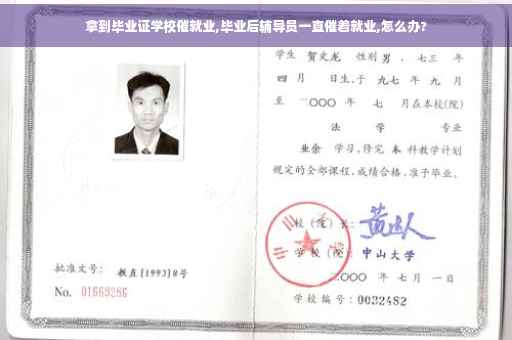 拿到毕业证学校催就业,毕业后辅导员一直催着就业,怎么办?
学生 贺文龙 性别 男，七三 年
四 月 日生，于 九七 年 九 月
至 二〇〇〇 年 七 月在本校(院)
法 学 专业
业余 学习，修完 本 科教学计划
规定的全部课程，成绩合格，准予毕业。
校（院）长：
学校（院）：中山大学
批准文号： 教直[1993]8号
二〇〇〇 年 七 月 一 日
No. 01669286
学校编号：0032482